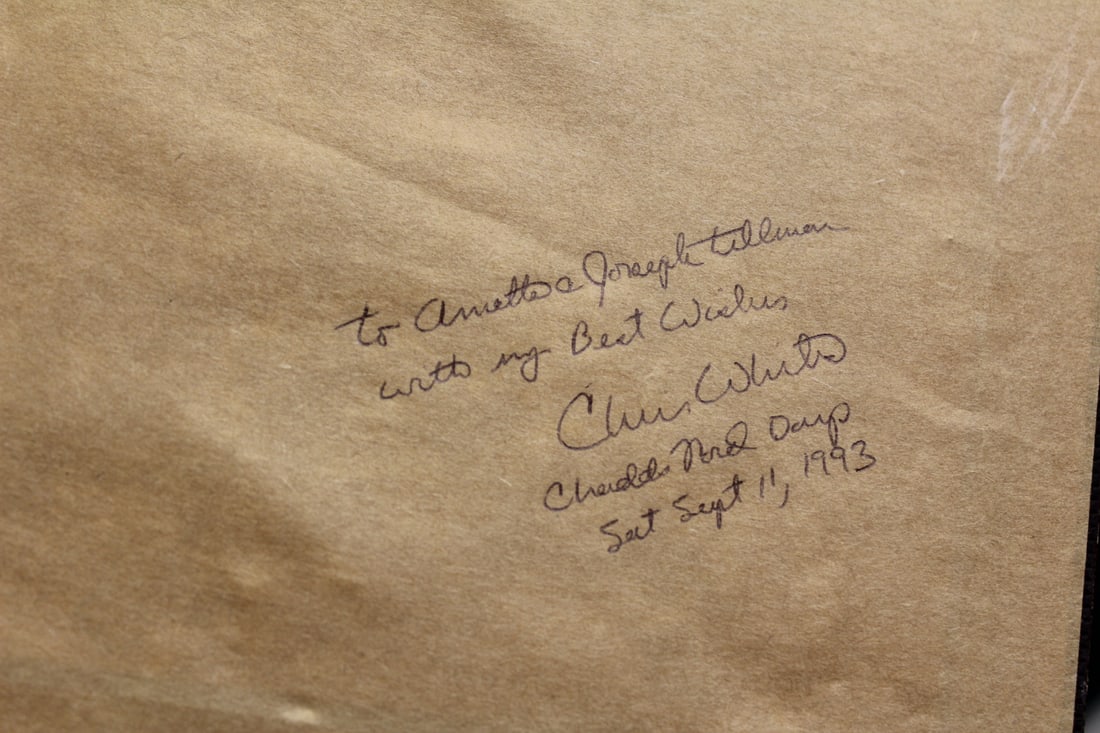 to Annette & Joseph tillman
with my Best Wishes
Chris White
Chadds Ford Days
Sat Sept 11, 1993